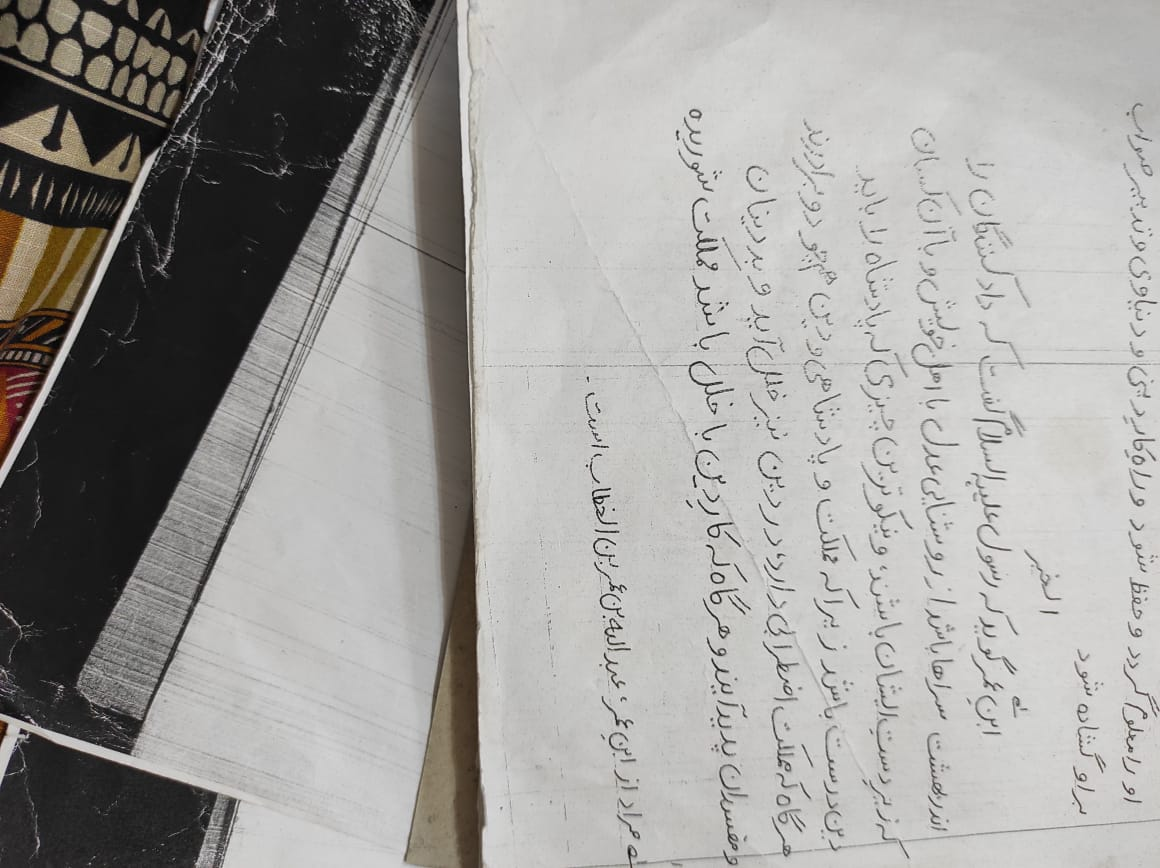 او را معلوم گردد و حفظ شود و راه کار دینی و دنیاوی و تدبیر صواب
بر او گشاده شود
الخبر
ابن عمر گوید که رسول علیه السلام گفت که داد کنندگان را
اندر بهشت سراها باشد از روشنایی عدل با اهل خویش و با آن کسان
که زیردست ایشان باشند و نیکوترین چیزی که پادشاه را باید
دین درست باشد زیرا که مملکت و پادشاهی و دین همچو دو برادرند
هر گاه که مملکت اضطرابی دارد؛ در دین نیز خلل آید و بد دینان
و مفسدان پدید آیند و هر گاه که کار دین با خلل باشد مملکت شوریده
مراد از ابن عمر؛ عبدالله بن عمر بن الخطاب است.